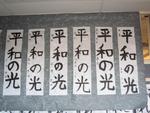 平和の光
平和の光
平和の光
平和の光
平和の光
平和の光